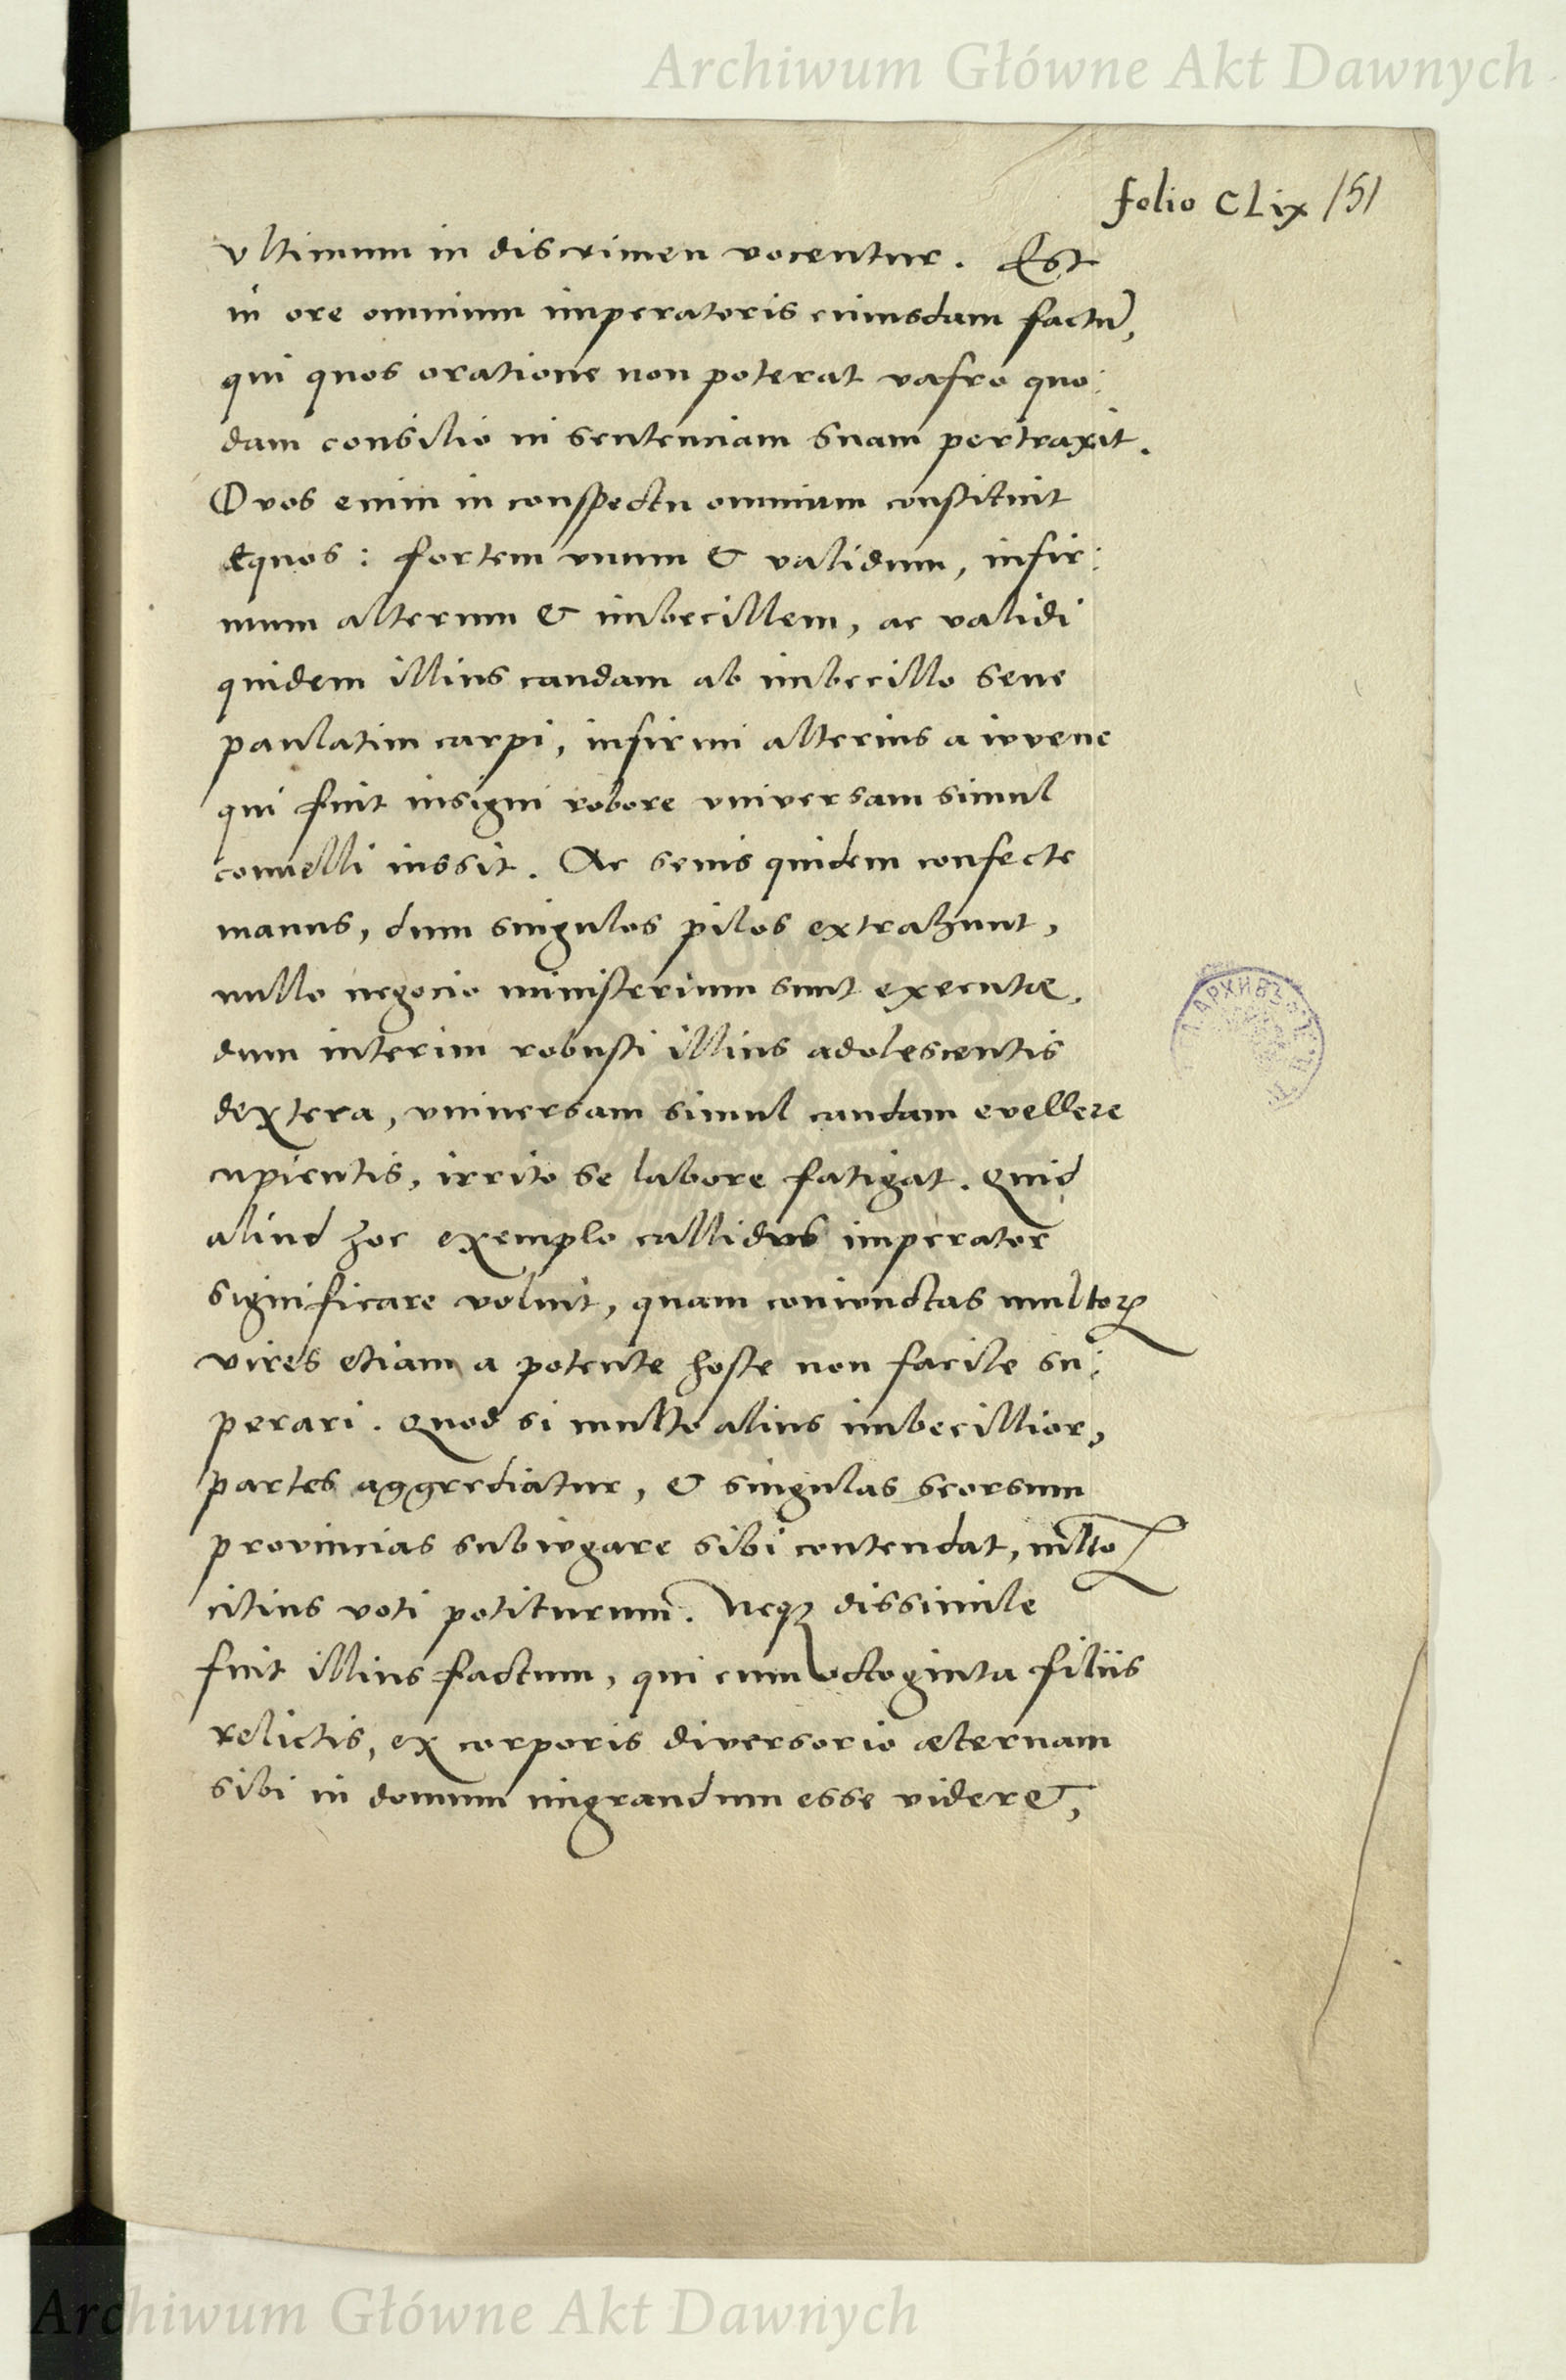 Archiwum Główne Akt Dawnych
folio CLix 151
vltimum in discrimen vocentur. Est
in ore omnium imperatoris cuiusdam factū,
qui quos oratione non poterat vafro quo:
dam consilio in sentenciam suam pertraxit.
Duos enim in conspectu omnium constituit
equos: fortem vnum & validum, infir:
mum alterum & imbecillem, ac validi
quidem illius caudam ab imbecillo sene
paulatim carpi, infirmi alterius a iuvene
qui fuit insigni robore vniversam simul
convelli iussit. Ac senis quidem confecte
manus, dum singulos pilos extrahunt,
nullo negocio ministerium sunt executæ,
dum interim robusti illius adolescentis
dextera, vniuersam simul caudam evellere
cupientis, irrito se labore fatigat. Quid
aliud hoc exemplo callidus imperator
significare voluit, quam coniunctas multoꝝ
vires etiam a potente hoste non facile su:
perari. Quod si multo alius imbecillior,
partes aggrediatur, & singulas seorsum
provincias subiugare sibi contendat, mlto
citius voti potiturum. Neqꝫ dissimile
fuit illius factum, qui cum octoginta filiis
relictis, ex corporis diversorio æternam
sibi in domum migrandum esse videret,
Archiwum Główne Akt Dawnych